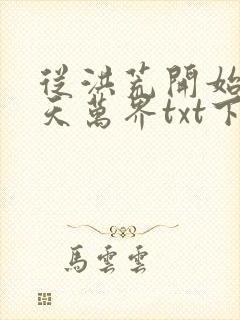 從洪荒開始
天萬界txt下
馬雲雲